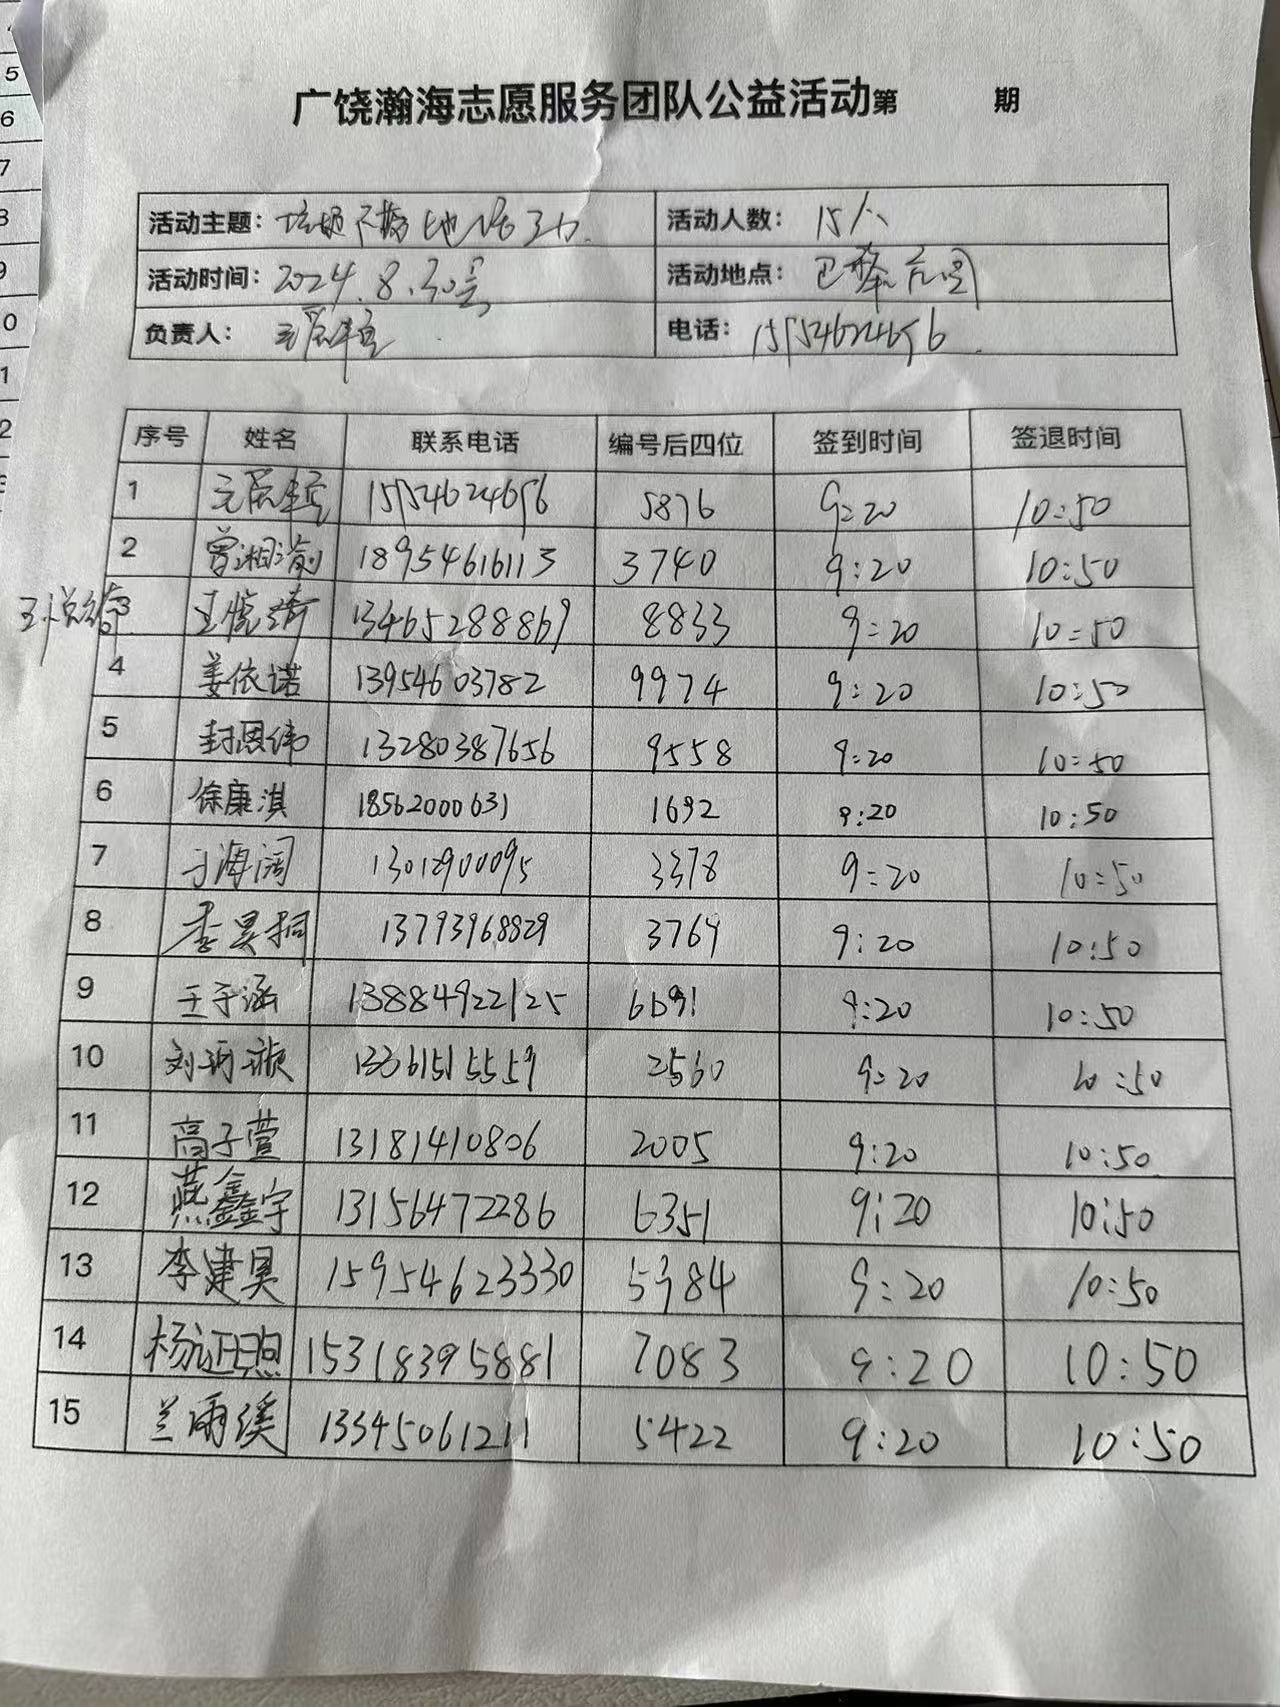 广饶瀚海志愿服务团队公益活动第 期
活动主题：垃圾不落地 活动人数：15人
活动时间：2024.8.30号 活动地点：
负责人： 电话：15554624656
序号 姓名 联系电话 编号后四位 签到时间 签退时间
1 15554624656 5876 9:20 10:50
2 曾湘渝 18954616113 3740 9:20 10:50
王悦绮
3 王悦绮 13465288869 8833 9:20 10:50
4 姜依诺 13954603782 9974 9:20 10:50
5 封恩纬 13280387656 9558 9:20 10:50
6 徐康淇 18562000631 1692 9:20 10:50
7 于海阔 13012900095 3378 9:20 10:50
8 李昊桐 13793968829 3764 9:20 10:50
9 王子涵 13884922125 6691 9:20 10:50
10 13361515559 2560 9:20 10:50
11 高子萱 13181410806 2005 9:20 10:50
12 燕鑫宇 13156472286 6351 9:20 10:50
13 李建昊 15954623330 5984 9:20 10:50
14 杨证煦 15318395881 7083 9:20 10:50
15 兰雨溪 13345061211 5422 9:20 10:50
5
6
7
8
9
0
1
2